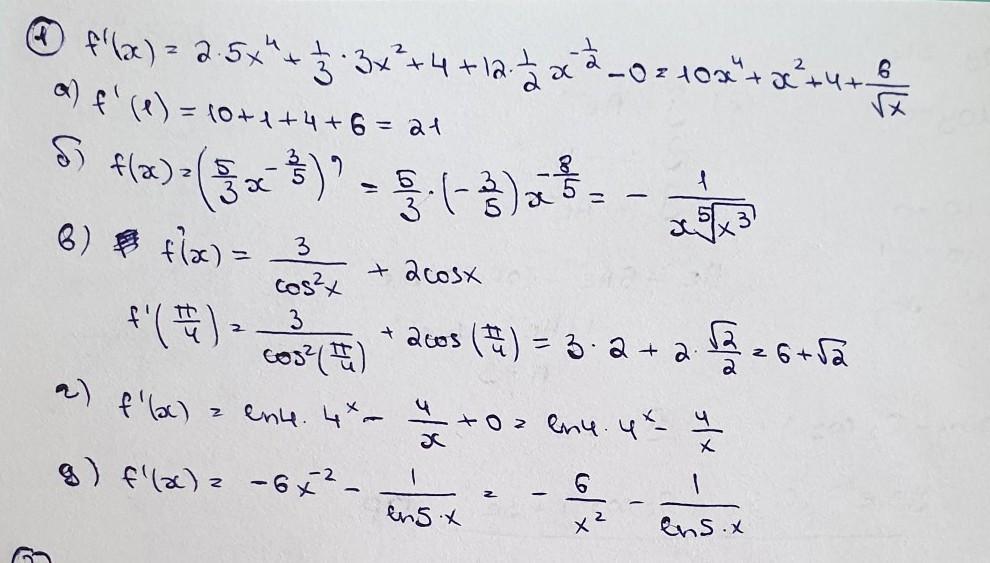 ① f'(x) = 2·5x⁴ + 1/3 · 3x² + 4 + 12 · 1/2 x^(-1/2) - 0 = 10x⁴ + x² + 4 + 6/√x
а) f'(1) = 10 + 1 + 4 + 6 = 21
б) f(x) = (5/3 x^(-3/5))' = 5/3 · (-3/5) x^(-8/5) = - 1/(x ⁵√x³)
в) f'(x) = 3/cos²x + 2cosx
f'(π/4) = 3/cos²(π/4) + 2cos(π/4) = 3 · 2 + 2 · √2/2 = 6 + √2
г) f'(x) = ln4 · 4ˣ - 4/x + 0 = ln4 · 4ˣ - 4/x
д) f'(x) = -6x⁻² - 1/(ln5·x) = - 6/x² - 1/(ln5·x)